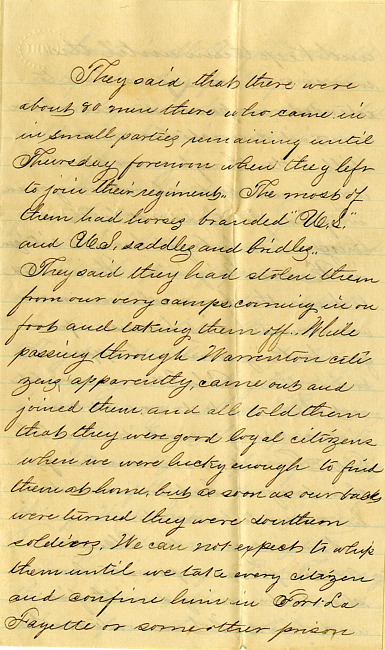 They said that there were
about 80 men there who came in
in small parties remaining until
Thursday forenoon when they left
to join their regiment. The most of
them had horses branded "U.S."
and U.S. saddles and bridles.
They said they had stolen them
from our very camps coming in on
foot and taking them off. While
passing through Warrenton citi
zens apparently, came out and
joined them, and all told them
that they were good loyal citizens
when we were lucky enough to find
them at home, but as soon as our backs
were turned they were southern
soldiers. We can not expect to whip
them until we take every citizen
and confine him in Fort La
Fayette or some other prison